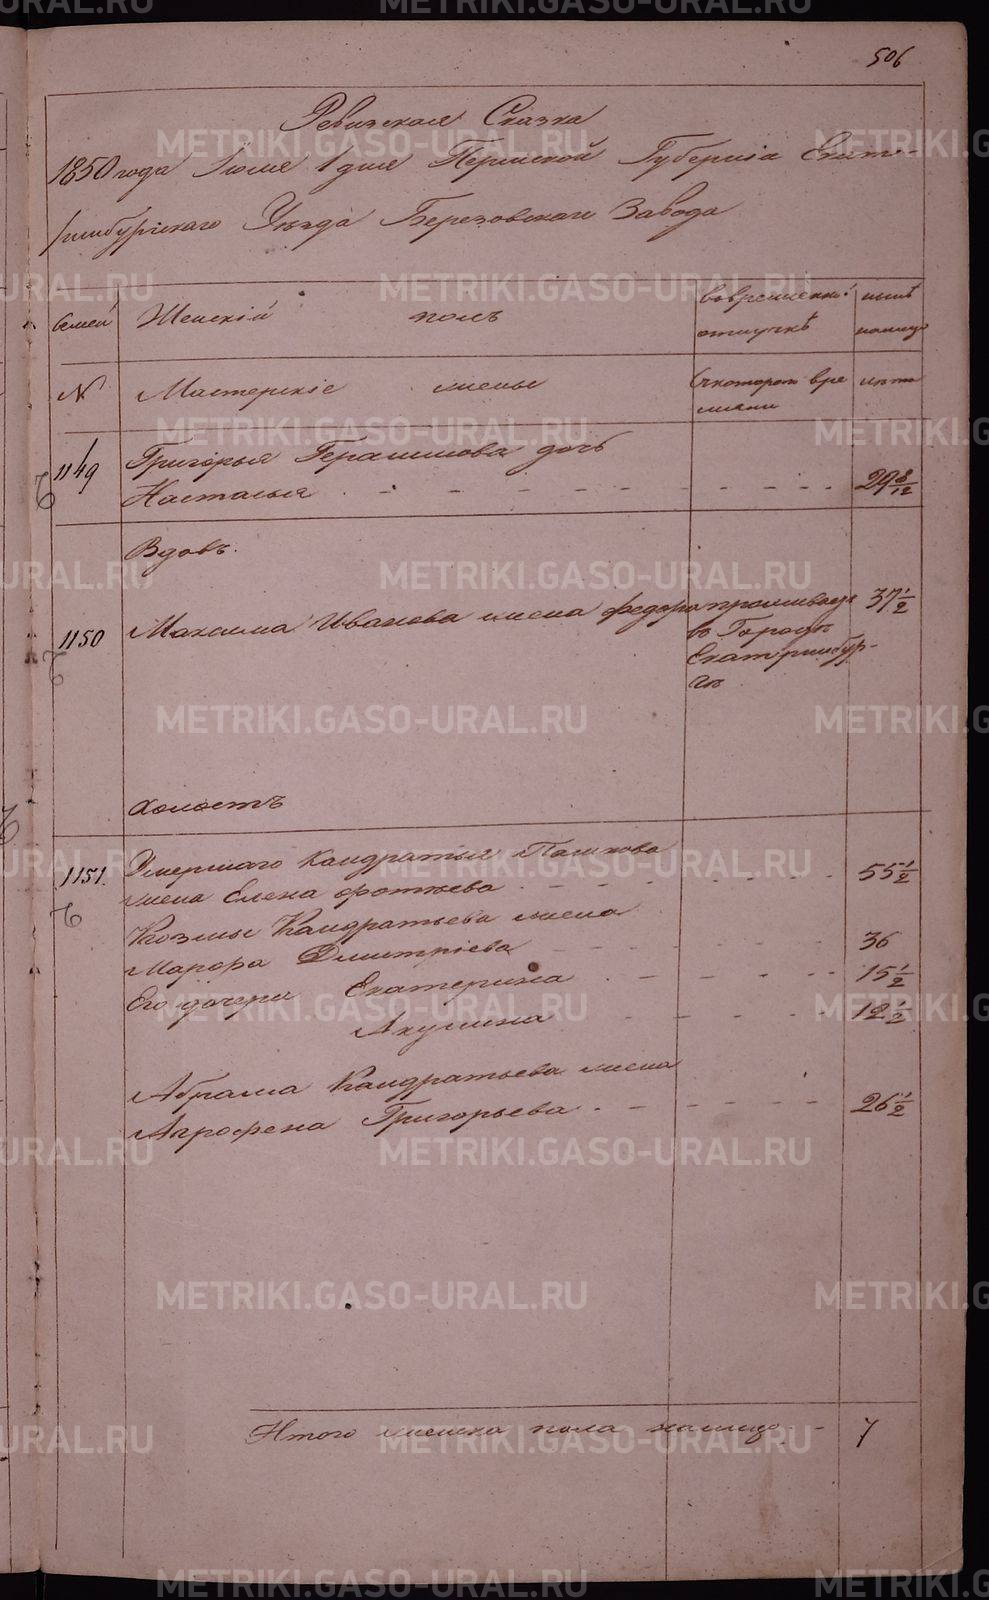 506
Ревизская Сказка
1850 года Июля 1 дня Пермской Губернiи Екате-
ринбургскаго Уѣзда Березовскаго Завода
Семей Женскiй полъ вовременной нынѣ
отлучкѣ налицо
№ Мастерскiе жены Скотораго вре лѣта
мяни
1149 Григорья Герасимова дочь
Насталья 29 8/12
Вдовъ.
1150 Максима Иванова жена Федора проживаетъ 37 1/2
въ Городѣ
Екатеринбур-
гѣ
Холостъ
1151. Умершаго Кандратья Пашкова
жена Елена Фотѣева 55 1/2
Козмы Кандратьева жена
Марфа Дмитрiева 36
Его дочери Екатерина 15 1/2
Акулина 12 1/2
Абрама Кандратьева жена
Агрофена Григорьева 26 1/2
Итого женска пола налицо 7
METRIKI.GASO-URAL.RU